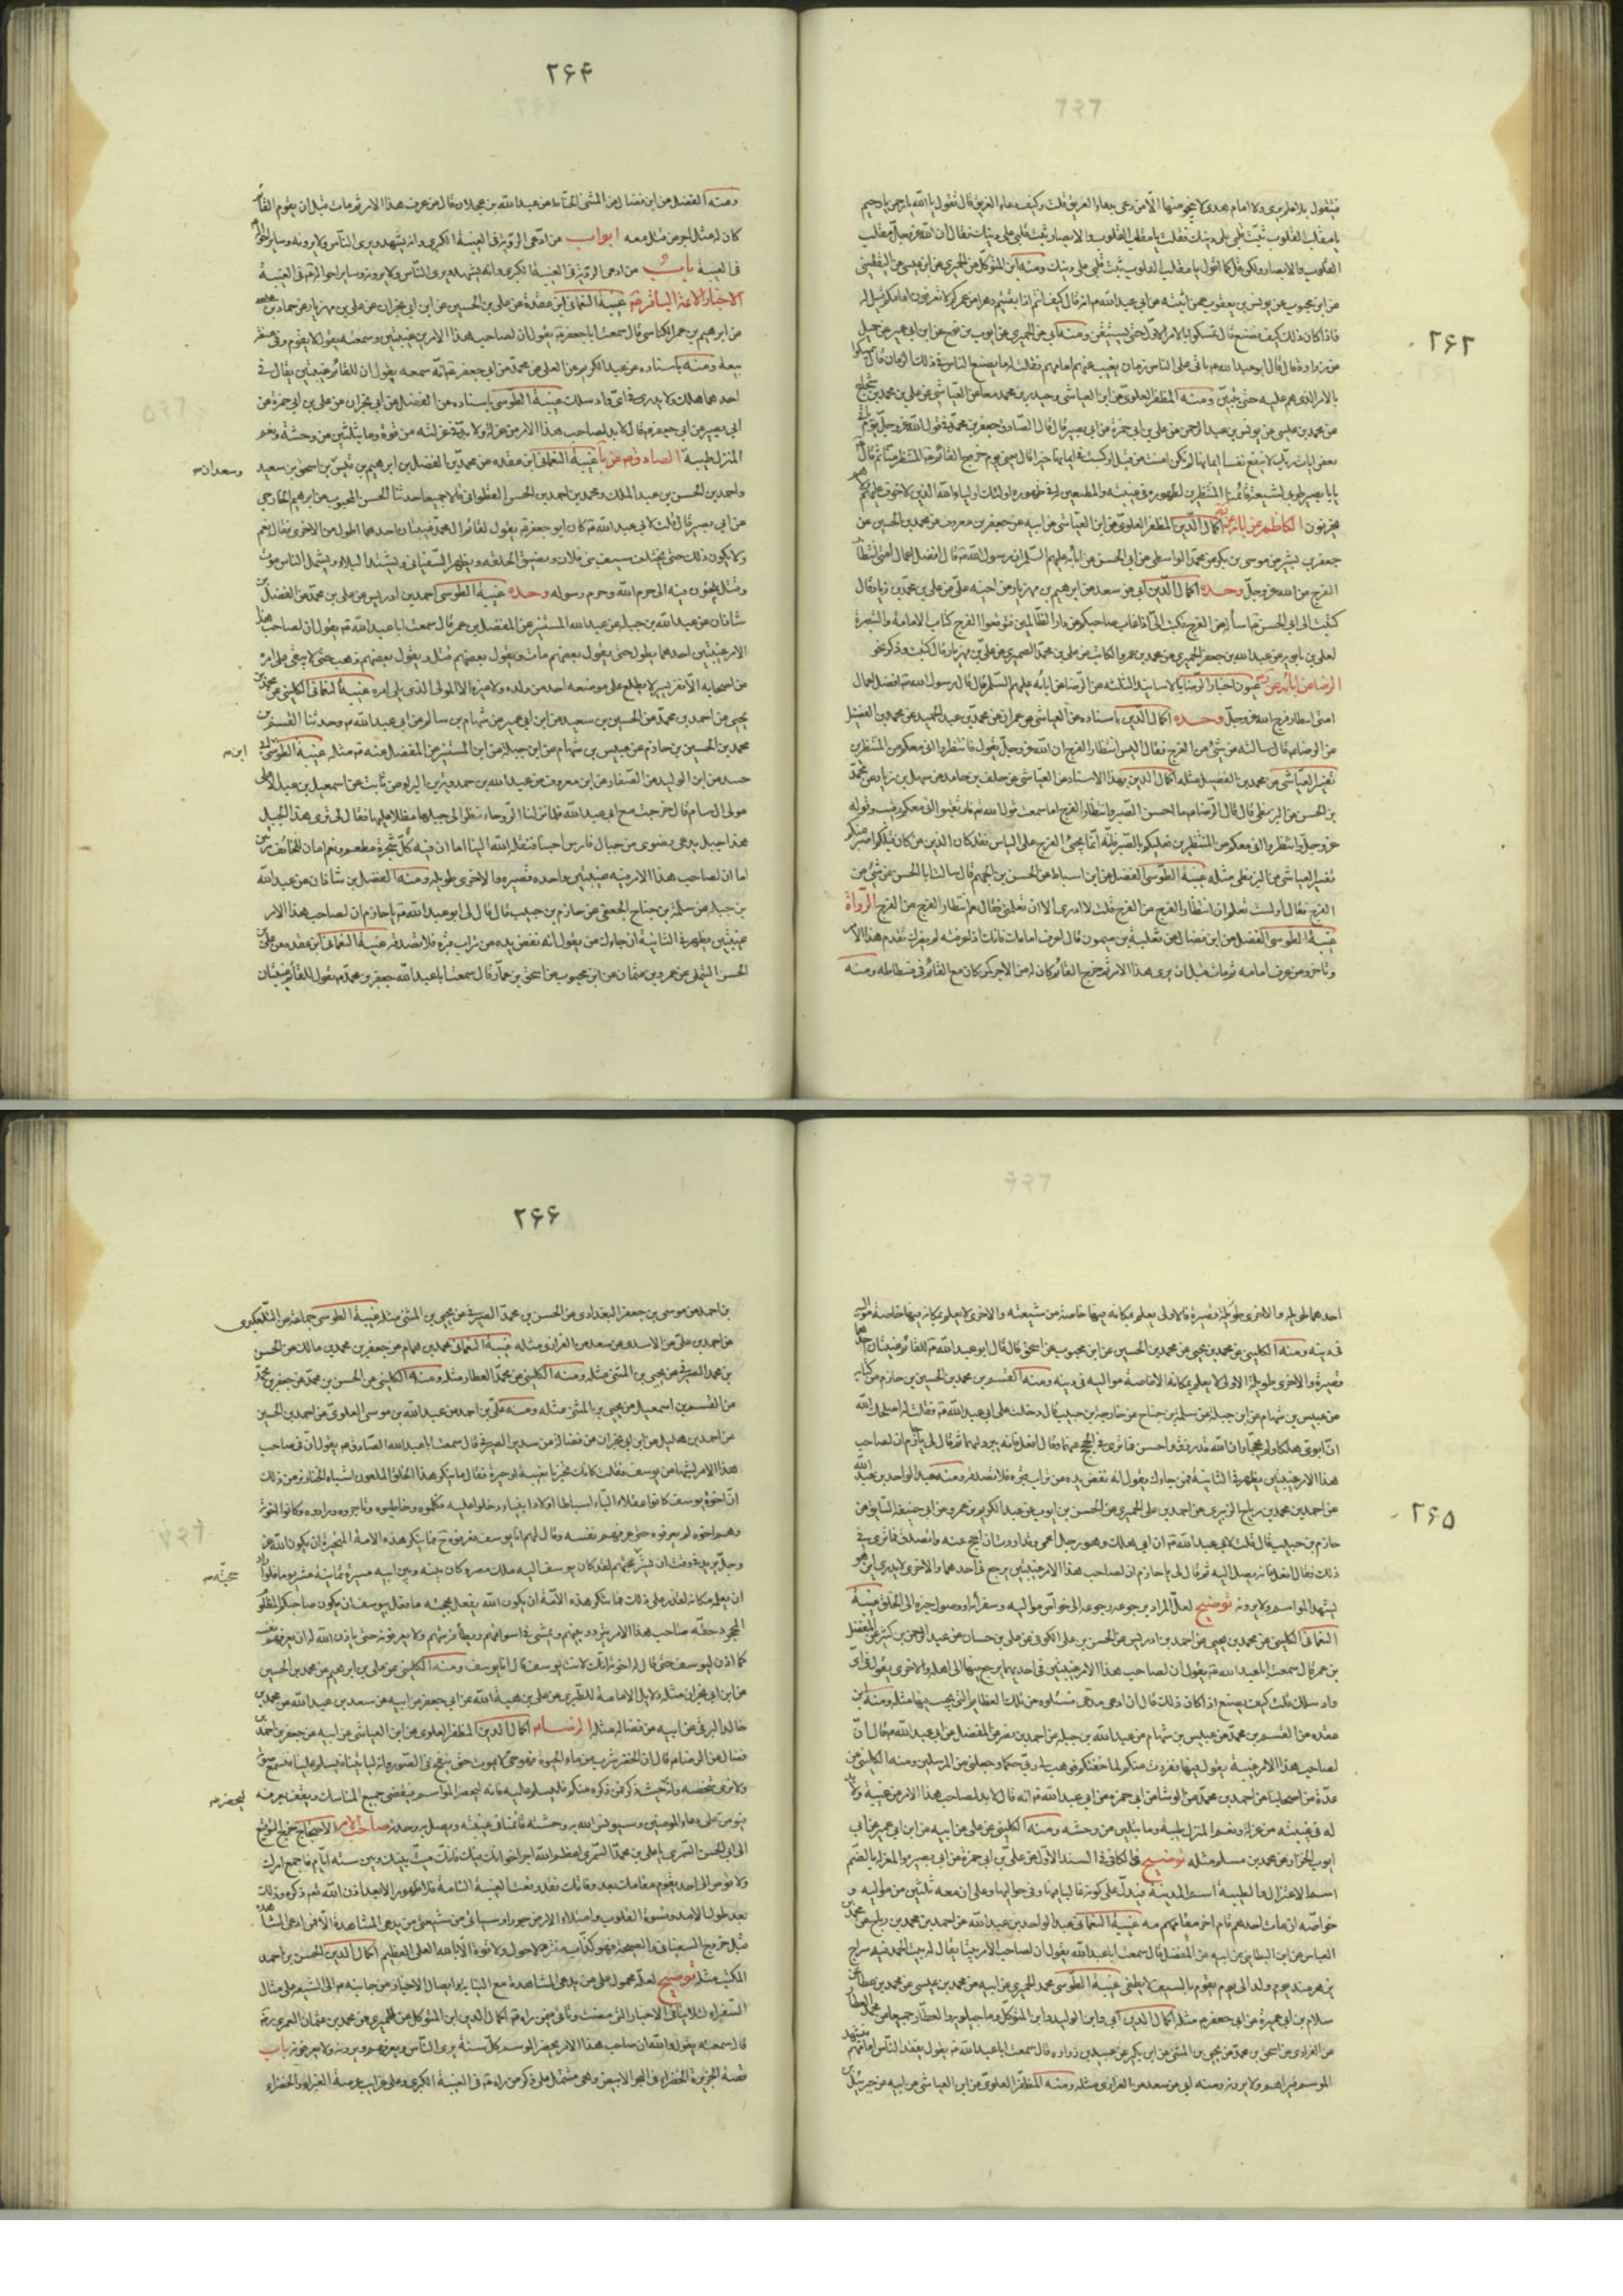 ۲۶۳
فيقول بلا علم يرى ولا امام هدى لا ينجو منها الا من دعى بدعاء الغريق قلت وكيف دعاء الغريق قال تقول يا الله يا رحمن يا رحيم
يا مقلب القلوب ثبت قلبى على دينك فقلت يا مقلب القلوب والابصار ثبت قلبى على دينك فقال ان الله عز وجل مقلب
القلوب والابصار ولكن قل كما اقول يا مقلب القلوب ثبت قلبى على دينك ومنه ابن المتوكل عن الحميرى عن ابن عيسى عن
عن ابن محبوب عن يونس بن يعقوب عمن اثبته عن ابى عبد الله انه قال كيف انتم اذا بقيتم دهرا من عمركم لا تعرفون امامكم قيل له
فاذا كان ذلك كيف نصنع قال تمسكوا بالامر الاول حتى يستيقن ومنه ابى عن الحميرى عن ايوب بن نوح عن ابن ابى عمير عن جميل
عن زرارة قال قال ابو عبد الله ياتى على الناس زمان يغيب عنهم امامهم فقلت له ما يصنع الناس فى ذلك الزمان قال
بالامر الذى هم عليه حتى يتبين ومنه المظفر العلوى عن ابن العياشى وحيدر بن محمد معا عن العياشى عن على بن محمد بن
عن محمد بن عيسى عن يونس بن عبد الرحمن عن على بن ابى حمزة عن ابى بصير قال قال الصادق جعفر بن محمد فى قول الله عز وجل
يحزنون الكاظم عن آبائه اكمال الدين المظفر العلوى عن ابن العياشى عن ابيه عن جعفر بن معروف عن محمد بن الحسين عن
جعفر بن بشير عن موسى بن بكر عن محمد الواسطى عن ابى الحسن عن ابائه عليهم السلم ان رسول الله قال افضل اعمال امتى انتظار
الفرج من الله عز وجل وحده اكمال الدين ابى عن سعد عن ابراهيم بن مهزيار عن اخيه على عن على بن محمد بن زياد قال
كتبت الى ابى الحسن اسأله عن الفرج فكتب الى اذا غاب صاحبكم عن دار الظالمين فتوقعوا الفرج كتاب الامامة والتبصرة
لعلى بن بابويه عن عبد الله بن جعفر الحميرى عن محمد بن عمرو الكاتب عن على بن محمد الصيمرى عن على بن مهزيار قال كتبت وذكر نحو
الرضا عن ابائه عيون اخبار الرضا بالاسانيد الثلثة عن الرضا عن ابائه عليهم السلم قال قال رسول الله افضل اعمال
امتى انتظار فرج الله عز وجل وحده اكمال الدين باسناده عن العياشى عن عمران عن محمد بن عبد الحميد عن محمد بن الفضيل
عن الرضا قال سالته عن شىء من الفرج فقال اليس انتظار الفرج ان الله عز وجل يقول فانتظروا انى معكم من المنتظرين
تفسير العياشى عن محمد بن الفضيل مثله اكمال الدين بهذا الاسناد عن العياشى عن خلف بن حامد عن سهل بن زياد عن محمد
بن الحسين عن البزنطى قال قال الرضا ما احسن الصبر وانتظار الفرج اما سمعت قول الله فارتقبوا انى معكم رقيب وقوله
عز وجل وانتظروا انى معكم من المنتظرين فعليكم بالصبر فانه انما يجىء الفرج على الياس فقد كان الذين من كان قبلكم اصبر منكم
تفسير العياشى عن البزنطى مثله غيبة الطوسى الفضل عن ابن اسباط عن الحسن بن الجهم قال سالت ابا الحسن عن شىء من
الفرج فقال اولست تعلم ان انتظار الفرج من الفرج قلت لا ادرى الا ان تعلمنى فقال نعم انتظار الفرج من الفرج الرواة
غيبة الطوسى الفضل عن ابن فضال عن ثعلبة بن ميمون قال اعرف امامك فانك اذا عرفته لم يضرك تقدم هذا الامر
وتاخر ومن عرف امامه ثم مات قبل ان يرى هذا الامر ثم خرج القائم كان له من الاجر كمن كان مع القائم فى فسطاطه ومنه
۲۶۴
ومنه الفضل عن ابن فضال عن المثنى الحناط عن عبد الله بن عجلان قال من عرف هذا الامر ثم مات قبل ان يقوم القائم
كان له مثل اجر من قتل معه ابواب من ادعى الرؤية فى الغيبة الكبرى وانه يشهد ويرى الناس ولا يرونه وساير احواله
فى الغيبة باب من ادعى الرؤية فى الغيبة الكبرى وانه يشهد ويرى الناس ولا يرونه وساير احواله فى الغيبة
الاخبار الائمة الباقر غيبة النعمانى ابن عقدة عن على بن الحسين عن ابن ابى نجران عن على بن مهزيار عن حماد بن
عن ابرهيم بن عمر الكناسى قال سمعت ابا جعفر يقول ان لصاحب هذا الامر غيبتين وسمعته يقول لا يقوم وفى عنقه
بيعة ومنه باسناده عن عبد الكريم عن العلى عن محمد عن ابى جعفر انه سمعه يقول ان للقائم غيبتين يقال فى
احدهما هلك ولا يدرى فى اى واد سلك غيبة الطوسى باسناده عن الفضل عن ابى نجران عن على بن ابى حمزة عن
ابى بصير عن ابى جعفر قال لا بد لصاحب هذا الامر من عزلة ولا بد فى عزلته من قوة وما بثلثين من وحشة ونعم
المنزل طيبة الصادق غيبة النعمانى ابن عقده عن محمد بن الفضل بن ابرهيم بن قيس بن اسحق بن سعيد
وسعدان
واحمد بن الحسن بن عبد الملك ومحمد بن احمد بن الحسن القطوانى قالا جميعا حدثنا الحسن المحبوب عن ابرهيم الخارجى
عن ابى بصير قال قلت لابى عبد الله كان ابو جعفر يقول لقائم ال محمد غيبتان احدهما اطول من الاخرى فقال نعم
ولا يكون ذلك حتى يختلف سيف بنى فلان وتضيق الحلقه ويظهر السفيانى ويشتد البلاء ويشمل الناس موت
وقتل يلجؤن فيه الى حرم الله وحرم رسوله وحده غيبة الطوسى احمد بن ادريس عن على بن محمد عن الفضل
شاذان عن عبد الله بن جبلة عن عبد الله المستنير عن المفضل بن عمر قال سمعت ابا عبد الله يقول ان لصاحب هذا
الامر غيبتين احدهما يطول حتى يقول بعضهم مات ويقول بعضهم قتل ويقول بعضهم ذهب حتى لا يبقى على امره
من اصحابه الا نفر يسير لا يطلع على موضعه احد من ولده ولا غيره الا المولى الذى يلى امره غيبة النعمانى الكلينى عن محمد بن
يحيى عن احمد بن محمد عن الحسين بن سعيد عن ابن ابى عمير عن هشام بن سالم عن ابى عبد الله وحدثنا القسم بن
محمد بن الحسين بن حازم عن عبيس بن هشام عن ابن جبلة عن ابن المستنير عن المفضل عنه مثله غيبة الطوسى
مولى ال سام قال خرجت مع ابى عبد الله فلما نزلنا الروحاء نظر الى جبلها مظلا عليها فقال لى ترى هذا الجبل
هذا جبل يدعى رضوى من جبال فارس احبنا فنقله الله الينا اما ان فيه كل شجرة مطعم ونعم امان للخائف
اما ان لصاحب هذا الامر فيه غيبتين واحده قصيره والاخرى طويله ومنه الفضل بن شاذان عن عبد الله
بن جبلة عن سلمة بن جناح الجعفى عن حازم بن حبيب قال قال لى ابو عبد الله يا حازم ان لصاحب هذا الامر
غيبتين يظهر فى الثانية ان جاءك من يقول انه نفض يده من تراب قبره فلا تصدقه غيبة النعمانى ابن عقده عن على
الحسن التيملى عن عمر بن عثمان عن ابن محبوب عن اسحق بن عمار قال سمعت ابا عبد الله جعفر بن محمد يقول للقائم غيبتان
۲۶۵
احدهما طويله والاخرى قصيره فالاولى يعلم بمكانه فيها خاصة من شيعته والاخرى لا يعلم بمكانه فيها خاصة مواليه
فى دينه ومنه الكلينى عن محمد بن يحيى عن محمد بن الحسين عن ابن محبوب عن اسحق قال قال ابو عبد الله للقائم غيبتان
قصيرة والاخرى طويلة الاولى لا يعلم بمكانه الا خاصة مواليه فى دينه ومنه القسم بن محمد بن الحسين بن حازم من كتابه
عن عبيس بن هشام عن ابن جبلة عن سلمة بن جناح عن حازم بن حبيب قال دخلت على ابى عبد الله فقلت له اصلحك الله
ان ابوى هلكا ولم يحجا وان الله قد رزق واحسن فما ترى فى الحج عنهما فقال افعل فانه يبرد لهما ثم قال لى يا حازم ان لصاحب
هذا الامر غيبتين يظهر فى الثانية فمن جاءك يقول انه نفض يده من تراب قبره فلا تصدقه ومنه عبد الواحد بن عبد الله
عن احمد بن محمد بن رباح الزهرى عن احمد بن على الحميرى عن الحسن بن ايوب عن عبد الكريم بن عمرو عن ابى حنيفة السايق عن
حازم بن حبيب قال قلت لابى عبد الله ان ابى هلك وهو رجل اعجمى وقد اردت ان احج عنه واتصدق فما ترى فى
ذلك فقال افعل فانه يصل اليه ثم قال لى يا حازم ان لصاحب هذا الامر غيبتين يرجع فى احدهما والاخرى لا يدرى اين هو
يشهد المواسم ولا يرونه توضيح لعل المراد برجوعه رجوعه الى خواص مواليه وسفرائه او وصول خبره الى الخلق غيبة
النعمانى الكلينى عن محمد بن يحيى عن احمد بن ادريس عن الحسن بن على الكوفى عن على بن حسان عن عبد الرحمن بن كثير عن المفضل
بن عمر قال سمعت ابا عبد الله يقول ان لصاحب هذا الامر غيبتين فى احديهما يرجع فيها الى اهله والاخرى يقال فى اى
واد سلك قلت كيف نصنع اذا كان ذلك قال ان ادعى مدع فسئلوه عن تلك العظايم التى يجيب فيها مثله ومنه ابن
عقده عن القسم بن محمد عن عبيس بن هشام عن عبد الله بن جبلة عن احمد بن نصر عن المفضل عن ابى عبد الله قال ان
لصاحب هذا الامر غيبة يقول فيها ففررت منكم لما خفتكم فوهب لى ربى حكما وجعلنى من المرسلين ومنه الكلينى عن
عدة من اصحابنا عن احمد بن محمد عن الوشا عن ابى حمزه عن ابى عبد الله انه قال لا بد لصاحب هذا الامر من غيبة ولا
له فى غيبته من عزلة ونعم المنزل طيبة وما بثلثين من وحشه ومنه الكلينى عن على عن ابيه عن ابن ابى عمير عن ابى
ايوب الخزاز عن محمد بن مسلم مثله توضيح فى الكافى فى السند الاول عن على بن ابى حمزة عن ابى بصير والعزلة بالضم
اسم الاعتزال والطيبة اسم المدينة فيدل على كونه غالبا فيها وفى حواليها وعلى ان معه ثلثين من مواليه و
خواصه ان مات احدهم قام اخر مقامهم غيبة النعمانى عبد الواحد بن عبد الله عن احمد بن محمد بن رباح عن محمد بن
العباس عن ابن البطاينى عن ابيه عن المفضل قال سمعت ابا عبد الله يقول ان لصاحب الامر بيتا يقال له بيت الحمد فيه سراج
يزهر منذ يوم ولد الى يوم يقوم بالسيف لا يطفى غيبة الطوسى محمد الحميرى عن ابيه عن محمد بن عيسى عن محمد بن عطا عن
سلام بن ابى عميرة عن ابى جعفر مثله اكمال الدين ابى وابن الوليد وابن المتوكل وماجيلويه والعطار جميعا عن محمد العطار
عن الفزارى عن اسحق بن محمد عن يحيى بن المثنى عن ابن بكير عن عبيد بن زراره قال سمعت ابا عبد الله يقول يفقد الناس امامهم فيشهد
الموسم فيراهم ولا يرونه ومنه ابى عن سعد عن الفزارى مثله ومنه المظفر العلوى عن ابن العياشى عن ابيه عن جبرئيل
۲۶۶
بن احمد عن موسى بن جعفر البغدادى عن الحسن بن محمد الصيرفى عن يحيى بن المثنى مثله غيبة الطوسى جماعة عن التلعكبرى
عن احمد بن على عن الاسدى عن سعد عن الفزارى مثله غيبة النعمانى محمد بن همام عن جعفر بن محمد بن مالك عن الحسن
بن محمد الصيرفى عن يحيى بن المثنى مثله ومنه الكلينى عن محمد العطار مثله ومنه الكلينى عن الحسن بن محمد عن جعفر بن محمد
عن القسم بن اسمعيل عن يحيى بن المثنى مثله ومنه على بن احمد عن عبد الله بن موسى العلوى عن احمد بن الحسين
عن احمد بن هليل عن ابن ابى نجران عن فضالة عن سدير الصيرفى قال سمعت ابا عبد الله الصادق يقول ان فى صاحب
هذا الامر لشبها من يوسف فقلت كانك تخبرنا بغيبة او حيرة فقال ما ينكر هذا الخلق الملعون اشباه الخنازير من ذلك
ان اخوة يوسف كانوا عقلاء البّاء اسباطا اولاد انبياء دخلوا عليه فكلموه وخاطبوه وتاجروه وراودوه وكانوا اخوته
وهو اخوهم لم يعرفوه حتى عرفهم نفسه وقال لهم انا يوسف فعرفوه ح فما ينكر هذه الامة المتحيرة ان يكون الله عز
حجته
ان يعلمه مكانه لقدر على ذلك فما تنكر هذه الامة ان يكون الله يفعل بحجته ما فعل بيوسف ان يكون صاحبكم المظلوم
المجحود حقه صاحب هذا الامر يتردد بينهم ويمشى فى اسواقهم ويطأ فرشهم ولا يعرفونه حتى ياذن الله له ان يعرفهم نفسه
كما اذن ليوسف حتى قال له اخوته انك لانت يوسف قال انا يوسف ومنه الكلينى عن على بن ابرهيم عن محمد بن الحسين
عن ابن ابى نجران مثله دلايل الامامة للطبرى عن على بن هبة الله عن ابى جعفر عن ابيه عن سعد بن عبد الله عن محمد بن
خالد البرقى عن ابيه عن فضاله مثله الرضا اكمال الدين المظفر العلوى عن ابن العياشى عن ابيه عن جعفر بن احمد
فضال عن الرضا قال ان الخضر شرب من ماء الحيوة فهو حى لا يموت حتى ينفخ فى الصور وانه لياتينا فيسلم علينا فنسمع صوته
ولا نرى شخصه وانه ليحضر حيث ذكر فمن ذكره منكم فليسلم عليه فانه ليحضر المواسم فيقضى جميع المناسك ويقف بعرفة
ليحضر
فيؤمن على دعاء المؤمنين وسيونس الله به وحشة قائمنا فى غيبته ويصل به وحدته صاحب الامر الاحتجاج خرج التوقيع
الى ابى الحسن السمرى يا على بن محمد السمرى اعظم الله اجر اخوانك فيك فانك ميت ما بينك وبين ستة ايام فاجمع امرك
ولا توص الى احد يقوم مقامك بعد وفاتك فقد وقعت الغيبة التامة فلا ظهور الا بعد اذن الله تعم ذكره وذلك
بعد طول الامد وقسوة القلوب وامتلاء الارض جورا وسياتى من شيعتى من يدعى المشاهدة الا فمن ادعى المشاهدة
قبل خروج السفيانى والصيحة فهو كذاب مفتر ولا حول ولا قوة الا بالله العلى العظيم اكمال الدين الحسن بن احمد
المكتب مثله توضيح لعله محمول على من يدعى المشاهدة مع النيابة وايصال الاخبار من جانبه الى الشيعة على مثال
السفراء لئلا ينافى الاخبار التى مضت وتاتى فيمن راه اكمال الدين ابن المتوكل عن الحميرى عن محمد بن عثمان العمرى
قال سمعته يقول والله ان صاحب هذا الامر يحضر الموسم كل سنة يرى الناس ويعرفهم ويرونه ولا يعرفونه باب
قصة الجزيرة الخضراء فى البحر الابيض وهى مشتمل على ذكر من راه فى الغيبة الكبرى وعلى غرايب